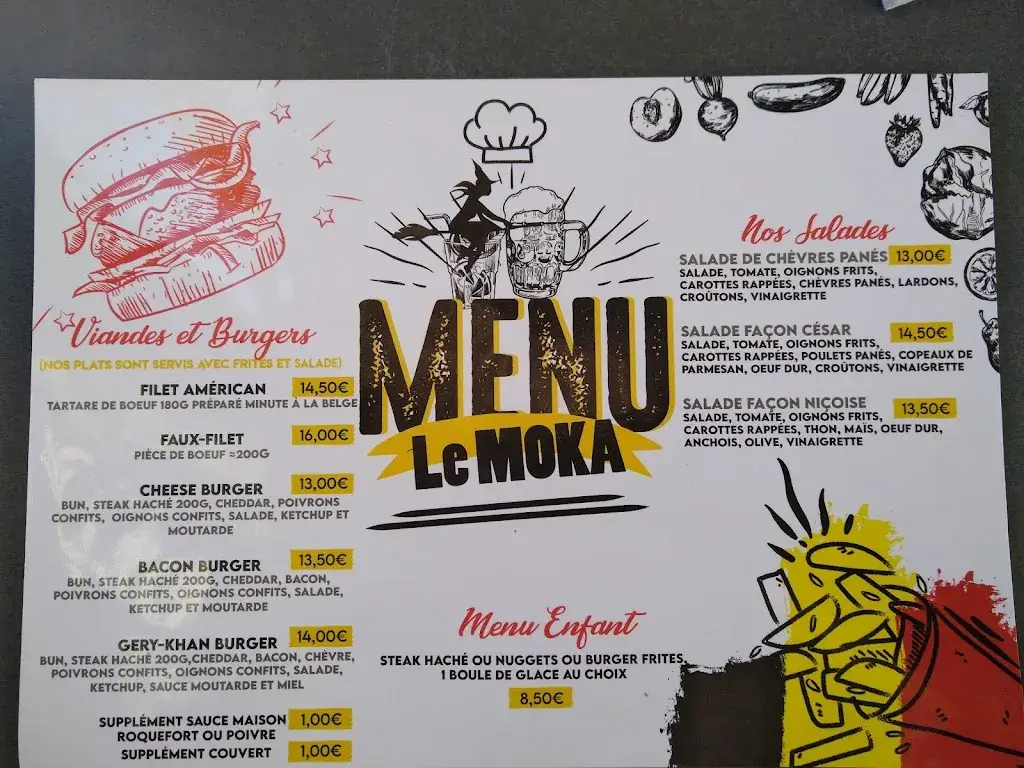 MENU
Le MOKA
Viandes et Burgers
(NOS PLATS SONT SERVIS AVEC FRITES ET SALADE)
FILET AMÉRICAN 14,50€
TARTARE DE BOEUF 180G PRÉPARÉ MINUTE À LA BELGE
FAUX-FILET 16,00€
PIÈCE DE BOEUF ≈200G
CHEESE BURGER 13,00€
BUN, STEAK HACHÉ 200G, CHEDDAR, POIVRONS
CONFITS, OIGNONS CONFITS, SALADE, KETCHUP ET
MOUTARDE
BACON BURGER 13,50€
BUN, STEAK HACHÉ 200G, CHEDDAR, BACON,
POIVRONS CONFITS, OIGNONS CONFITS, SALADE,
KETCHUP ET MOUTARDE
GERY-KHAN BURGER 14,00€
BUN, STEAK HACHÉ 200G,CHEDDAR, BACON, CHÈVRE,
POIVRONS CONFITS, OIGNONS CONFITS, SALADE,
KETCHUP, SAUCE MOUTARDE ET MIEL
SUPPLÉMENT SAUCE MAISON 1,00€
ROQUEFORT OU POIVRE
SUPPLÉMENT COUVERT 1,00€
Menu Enfant
STEAK HACHÉ OU NUGGETS OU BURGER FRITES,
1 BOULE DE GLACE AU CHOIX
8,50€
Nos Salades
SALADE DE CHÈVRES PANÉS 13,00€
SALADE, TOMATE, OIGNONS FRITS,
CAROTTES RAPPÉES, CHÈVRES PANÉS, LARDONS,
CROÛTONS, VINAIGRETTE
SALADE FAÇON CÉSAR 14,50€
SALADE, TOMATE, OIGNONS FRITS,
CAROTTES RAPPÉES, POULETS PANÉS, COPEAUX DE
PARMESAN, OEUF DUR, CROÛTONS, VINAIGRETTE
SALADE FAÇON NIÇOISE 13,50€
SALADE, TOMATE, OIGNONS FRITS,
CAROTTES RAPPÉES, THON, MAÏS, OEUF DUR,
ANCHOIS, OLIVE, VINAIGRETTE